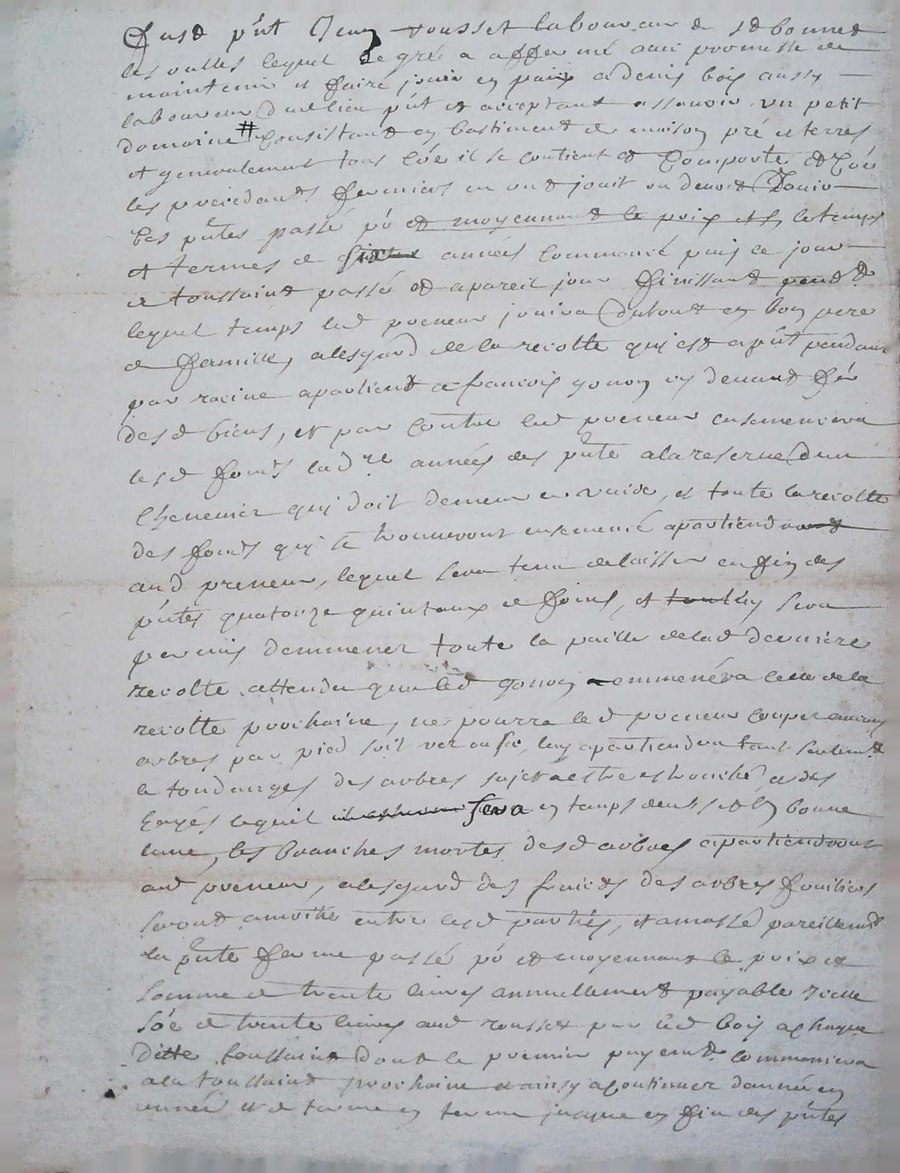 Fust p'nt Jean rousset laboureur de St bonnet
les oulles lequel de gré a affermé avec promesse de
maintenir et faire jouir en paix a denis bois aussy
laboureur dud lieu p'nt et acceptant assavoir un petit
domaine # Consistant en bastiment de maison pré et terres
et generalement tous Coe il se contient et Comporte et Coe
les precedants fermiers en ont jouit ou deues Jouir
Les p'ntes passé p'r et moyennant le prix et les temps
et termes de années Commancé puis ce jour
de toussaint passé et a pareil jour finissant pendt
lequel temps led preneur jouira Du tout en bon pere
de famille, alesgard de la recolte qui est a p'nt pendante
par racine apartient a francois gonon cy devant fer
desd biens, et par Contre led preneur ensemencera
lesd fonds lad re années des p'ntes a la reserve D'un
Chenevier qui doit demeurer vuide, et toute la recolte
des fonds qui se trouveront ensemencé apartiendront
aud preneur, lequel sera tenu de laisser en fin des
p'ntes quatorze quintaux de foins, et luy sera
permis demmener toute la paille de lad derniere
recolte attendu que led gonon emmenera celle de la
recolte prochaine, ne pourra led preneur couper aucuns
arbres par pied soit ver ou sec, luy apartiendra tant seulemt
le tondanges des arbres sujet a estre esbranché a des
hayes lequel sera en temps deub et en bonne
lune, les branches mortes desd arbres apartiendront
aud preneur, alesgard des fruits des arbres fruitiers
seront a moitié entre lesd parties, et amassé pareillemt
la p'nte ferme passé p'r et moyennant le prix et
somme de trente livres annuellement payable icelle
soe de trente livres aud rousset par led bois a chaque
ditte toussaint dont le premier payemt commancera
a la toussaint prochaine et ainsy a continuer d'année en
année et de terme en terme jusque en fin des p'ntes